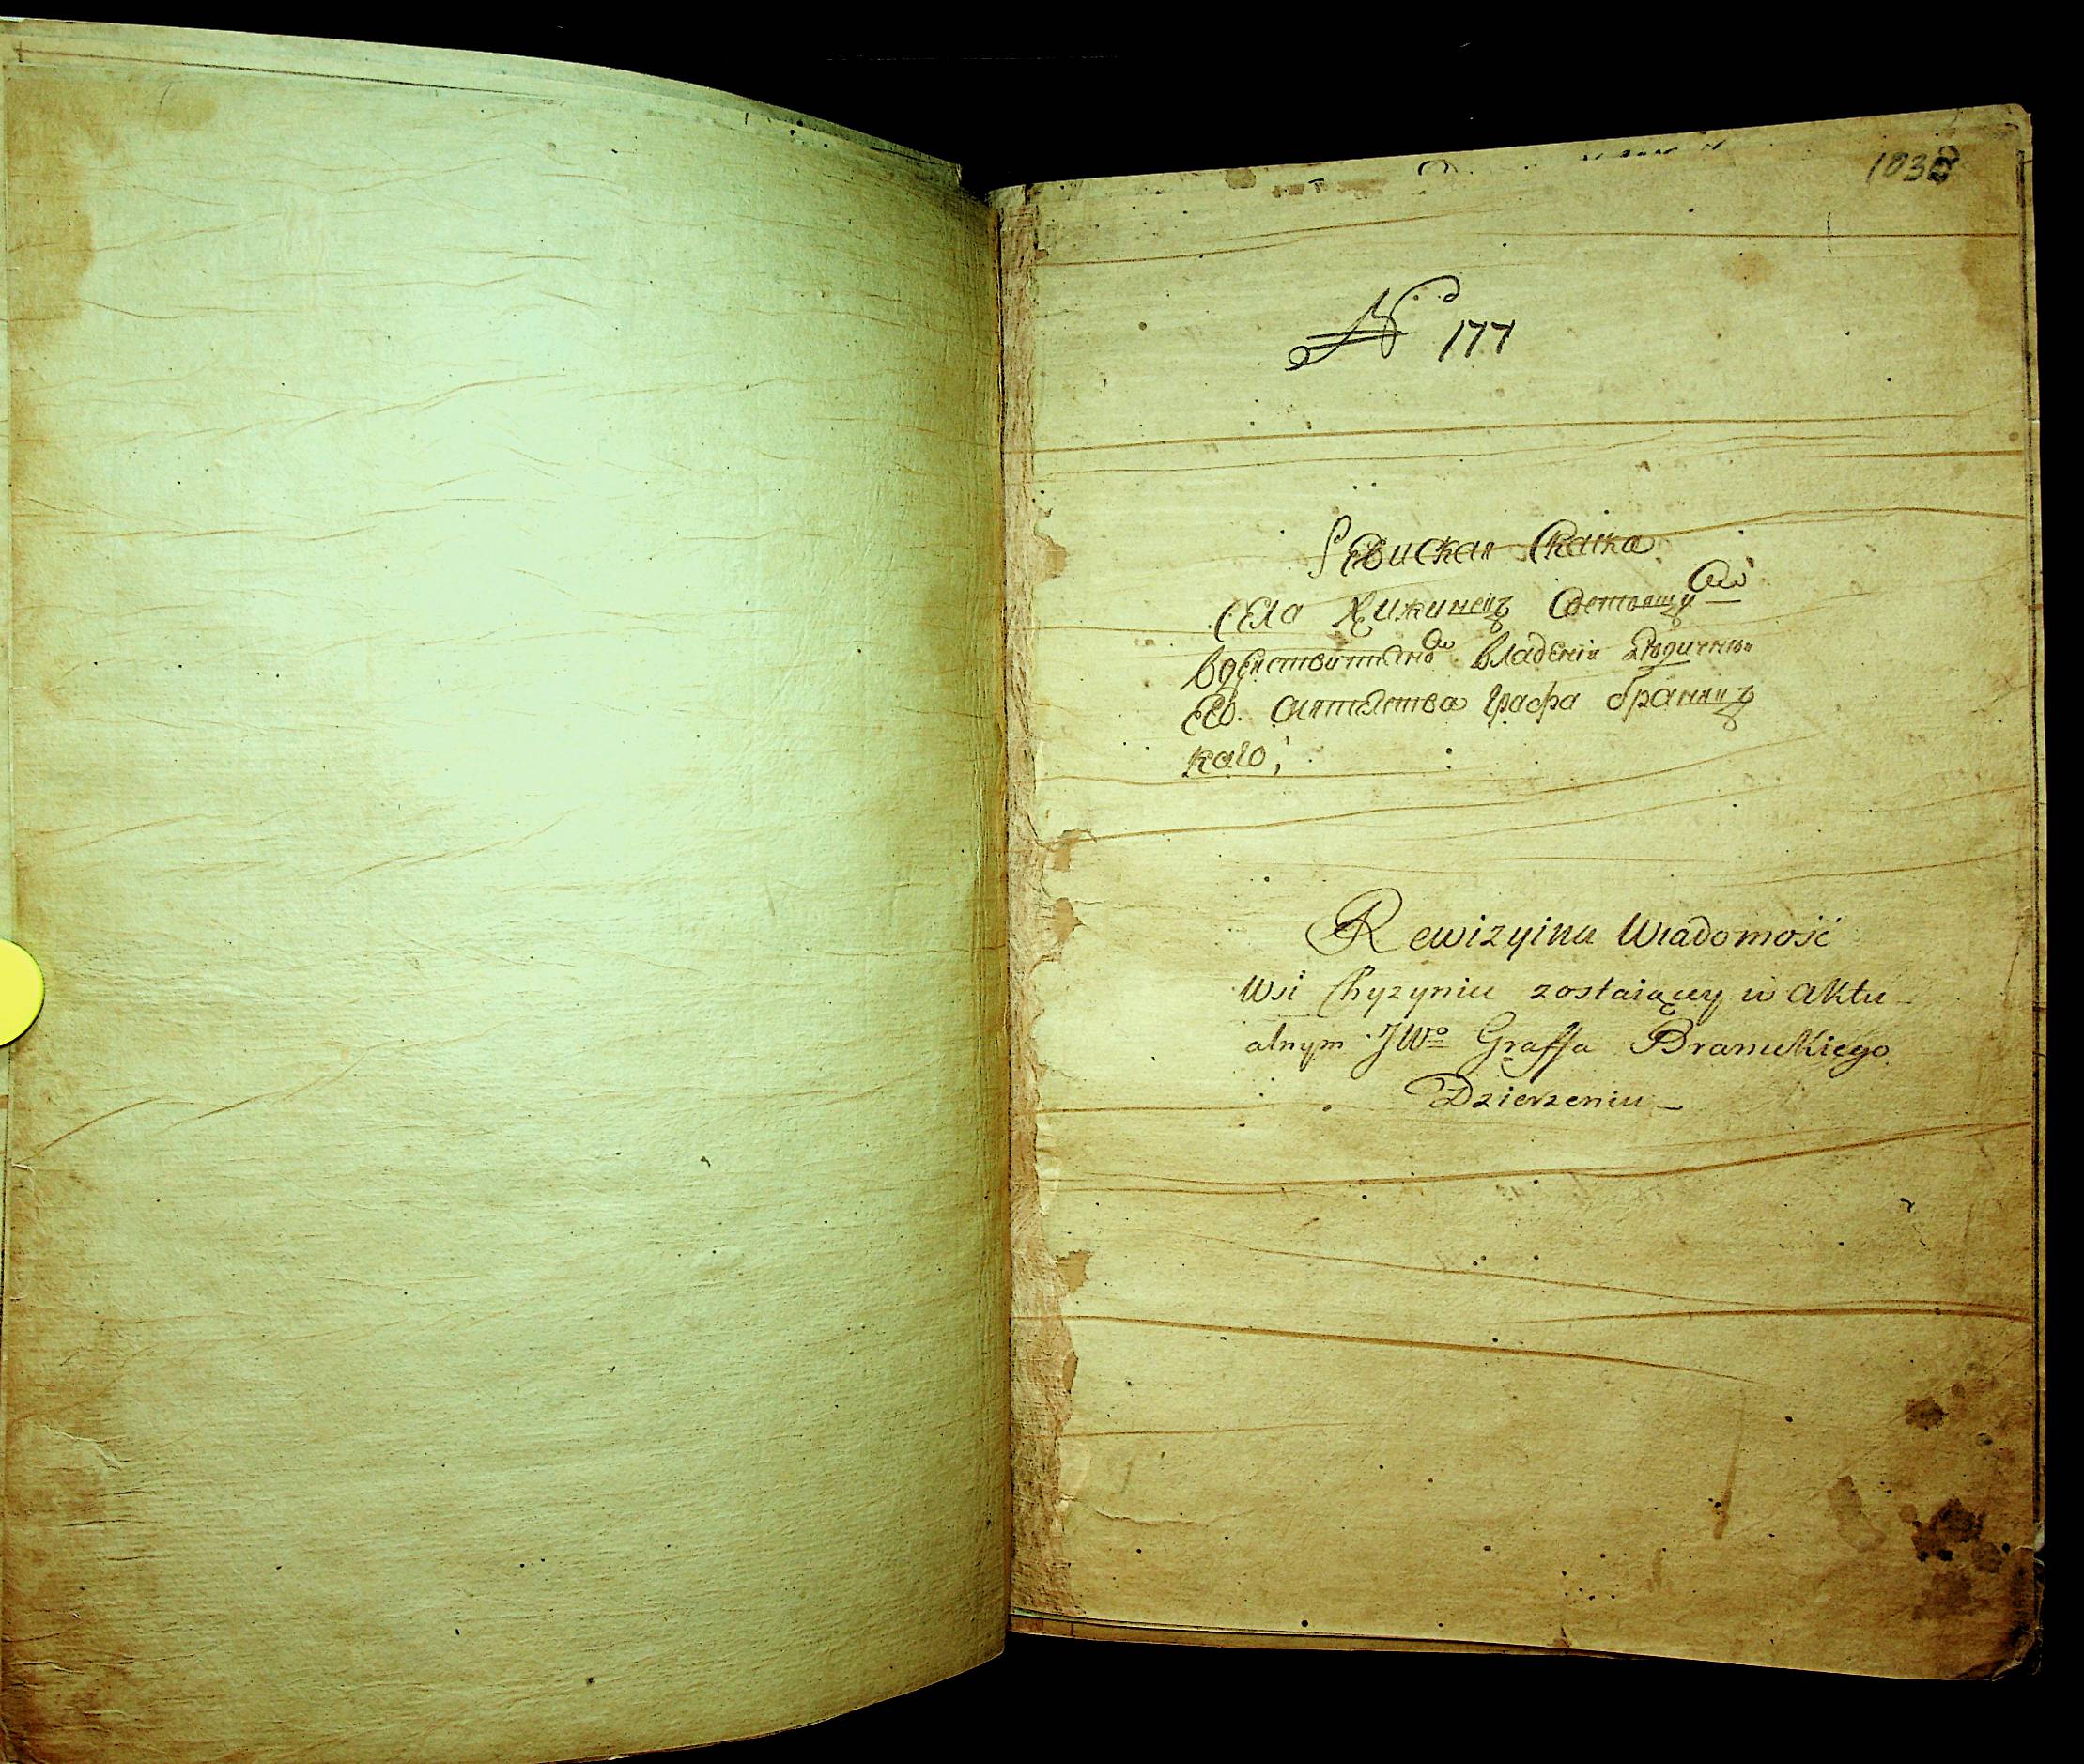 1032
№ 177
Ревиская Скаска
Села Хижинецъ Состоящаго
вдействителномъ владении
Его Сиятелства графа браниц
каго;
Rewizyina Wiadomość
Wsi Chyzyniec zostaiącey w Aktu-
alnym JWo Graffa Branickiego
Dzierzeniu_